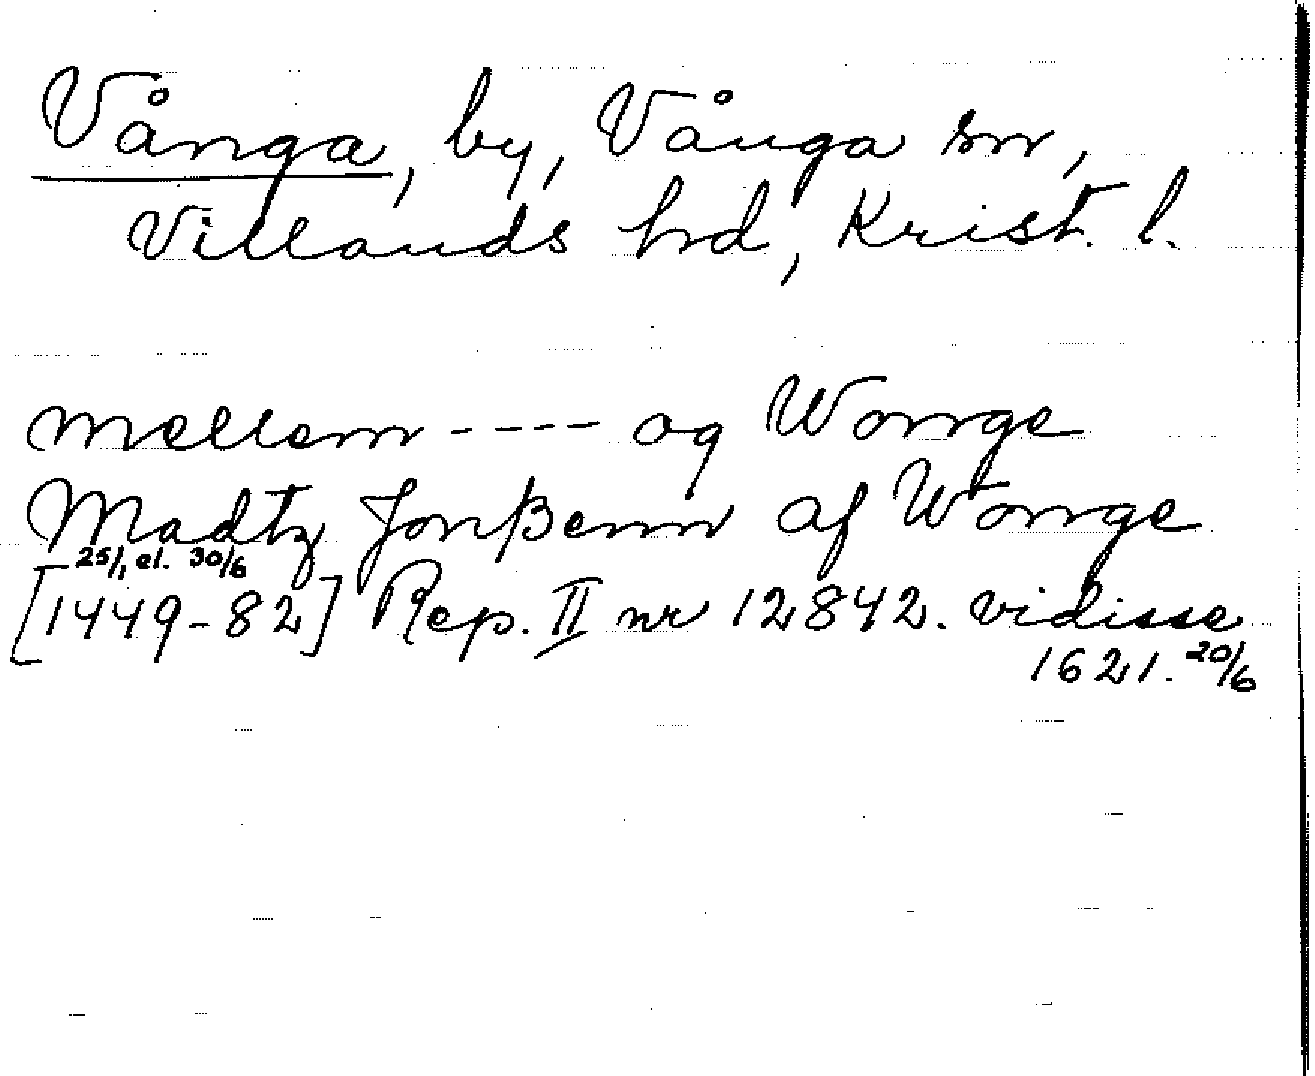 Vånga, by, Vånga sn,
Villands hd, Krist. l.
mellem ---- og Wonge
Madtz Jonßenn af Wonge
25/1 el. 30/6
[1449-82] Rep. II nr 12842. vidisse
1621. 20/6